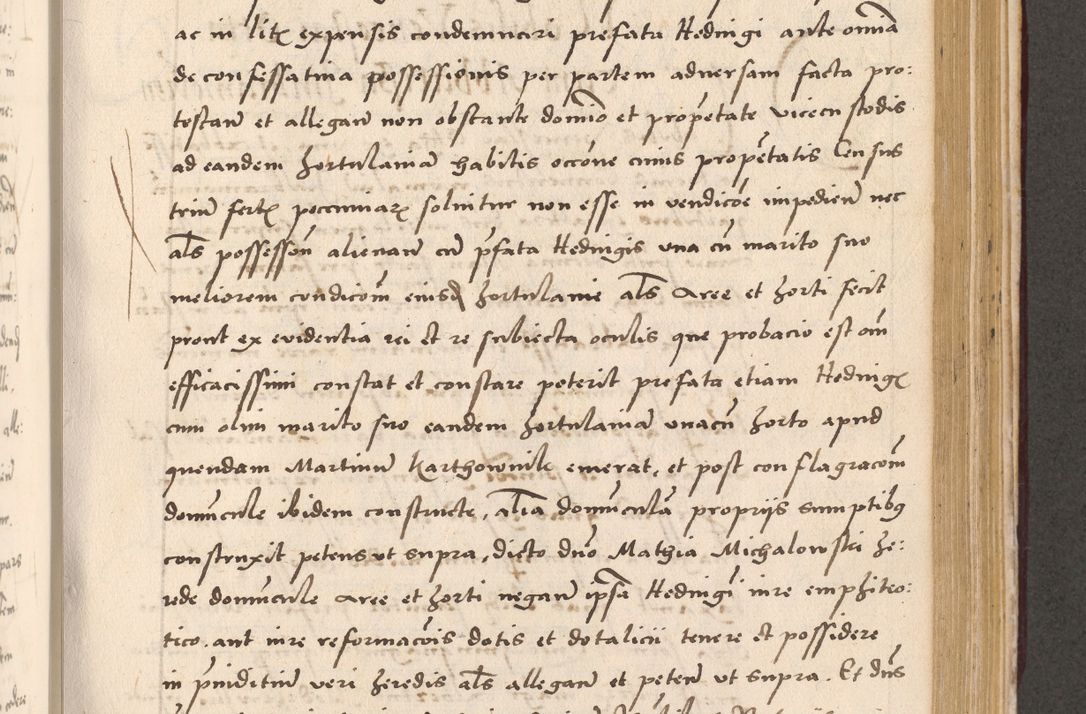 ac in litꝭ expensis condemnari prefata Heduigi ante om̄ia
de confessatiua possessionis per partem aduersam facta pro:
testan̄ et allegan̄ non obstante domīo et propētate vicecustodis
ad eandem hortulaniā habitis occōne cuius propētatis Census
triū fertꝭ peccuniarꝝ soluitur non esse in vendicōe impedien̄ nec
al̄s possessōn̄ alienan̄ cū p̄fata Heduigis vna cū marito suo
meliorem condicōm eiusdꝫ hortulanie al̄s Aree et horti fecit
prout ex euidentia rei et re subiecta oculis que probacio est om̄
efficacissimi constat et constare poterit prefata etiam Heduigꝭ
cum olim marito suo eandem hortulaniā vnacū horto apud
quendam Martinū Karthownik emerat, et post conflagracōm
domūcule ibidem constructe, aliā domūculā proprijs sumptibꝯ
construxit petens vt supra, dicto dn̄o Mathia Michalowski he:
rede domūcule Aree et horti negan̄ ip̄sā Heduigi iure emphiteo:
tico, aut iure reformacōis dotis et dotalicii tenere et possidere
in p̄iuditiū veri heredis al̄s allegan̄ et peten̄ vt supra. Et dn̄s